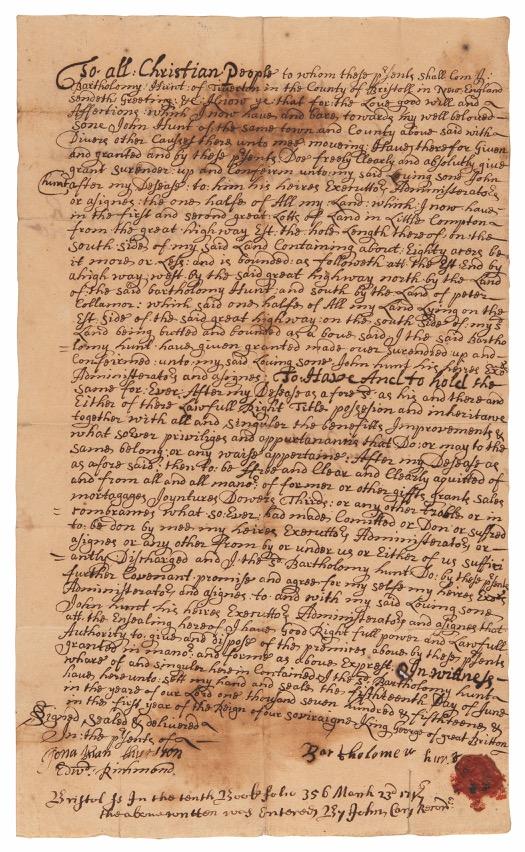 To all: Christian People to whom these p'sents shall Com I:
Bartholomy Hunt: of Tiverton in the County of Bristoll in New England
sendeth Greeting: &c: Know ye that for the Love good will and
Affections which I now have and bare towards my well beloved
sone John Hunt of the same town and County above said with
Divers other Causes there unto mee moveing: Have therefor Given
and granted and by these p'sents Doe freely Clearly and absolutly give
grant surender: up and Confeirm unto my said Loving sone John
hunt after my Desease: to him his heires Executtors Administerators
or asignes: the one halfe of All my Land: which: I now have
in the first and second great Lotts of Land in Little Compton
from the great highway Est. the hole Length there of: on the
south side of my said Land Containing about: Eighty acers be
it more or Less: and is bounded: as followeth att the Est End by
a high way: west by the said great highway north by the Land
of the said bartholomy Hunt: and south by the Land of peter
Collamor: which said one halfe of All my Land Lying on the
Est Side of the said great highway: on the south side of my sd
Land being butted and bounded as a bove said I the said Bartho
=lomy hunt: have given granted made over surendred up and
Confeirmed: unto my said Loving sone John hunt his heires Exe
Administerators and asignes: To Have And to hold the
same for Ever: After my Desease as afore sd: as his and there and
Either of there Lawfull Right Title possesion and inheritance
together with all and singuler the benefills Improvements &
what soever priviliges and appurtanances that Do: or may to the
same belong: or any waise appertaine: After my Desease as
as afore said: then to: be ffree and Clear and Clearly aquitted of
and from all and all manor: of former or other giffts grants sales
mortagages Joyntures Dowers Thirds: or any other troble or in
=combrances what so: Ever: had made Comitted or Don or suffred
to: be don by mee my heires Executtors Administerators or
asignes or any other from by or under us or Either of us suffici
=antly Discharged and I the sd Bartholomy hunt Do: by these p'sents
further Covenant promise and agree for my selfe my heires Exe
Administerators and asignes: to and with my said Loving sone
John hunt his heires Executtors Administerators and asignes that
att the Ensealing hereof I have good Right full power and Lawfull
Authority to: give and dispose of the promises above by these p'sents
granted in manor and forme as above Exprest In witness
whare of and singuler here in Contained I the sd Bartholomy hunt
have here unto: sett my hand and seale the fifteenth Day of June
in the yeare of our Lord one thousand seven hundred & fifteene, &
in the first year of the Reign of our soviraigne King George of great Brittan
Signed Sealed & delivered
In: the p'sents of
Edwd. Richmond
Bartholomew hunt
Bristol Ss In the tenth Book folio 356 March 23d
the above written was Entered By John Cary Recordr